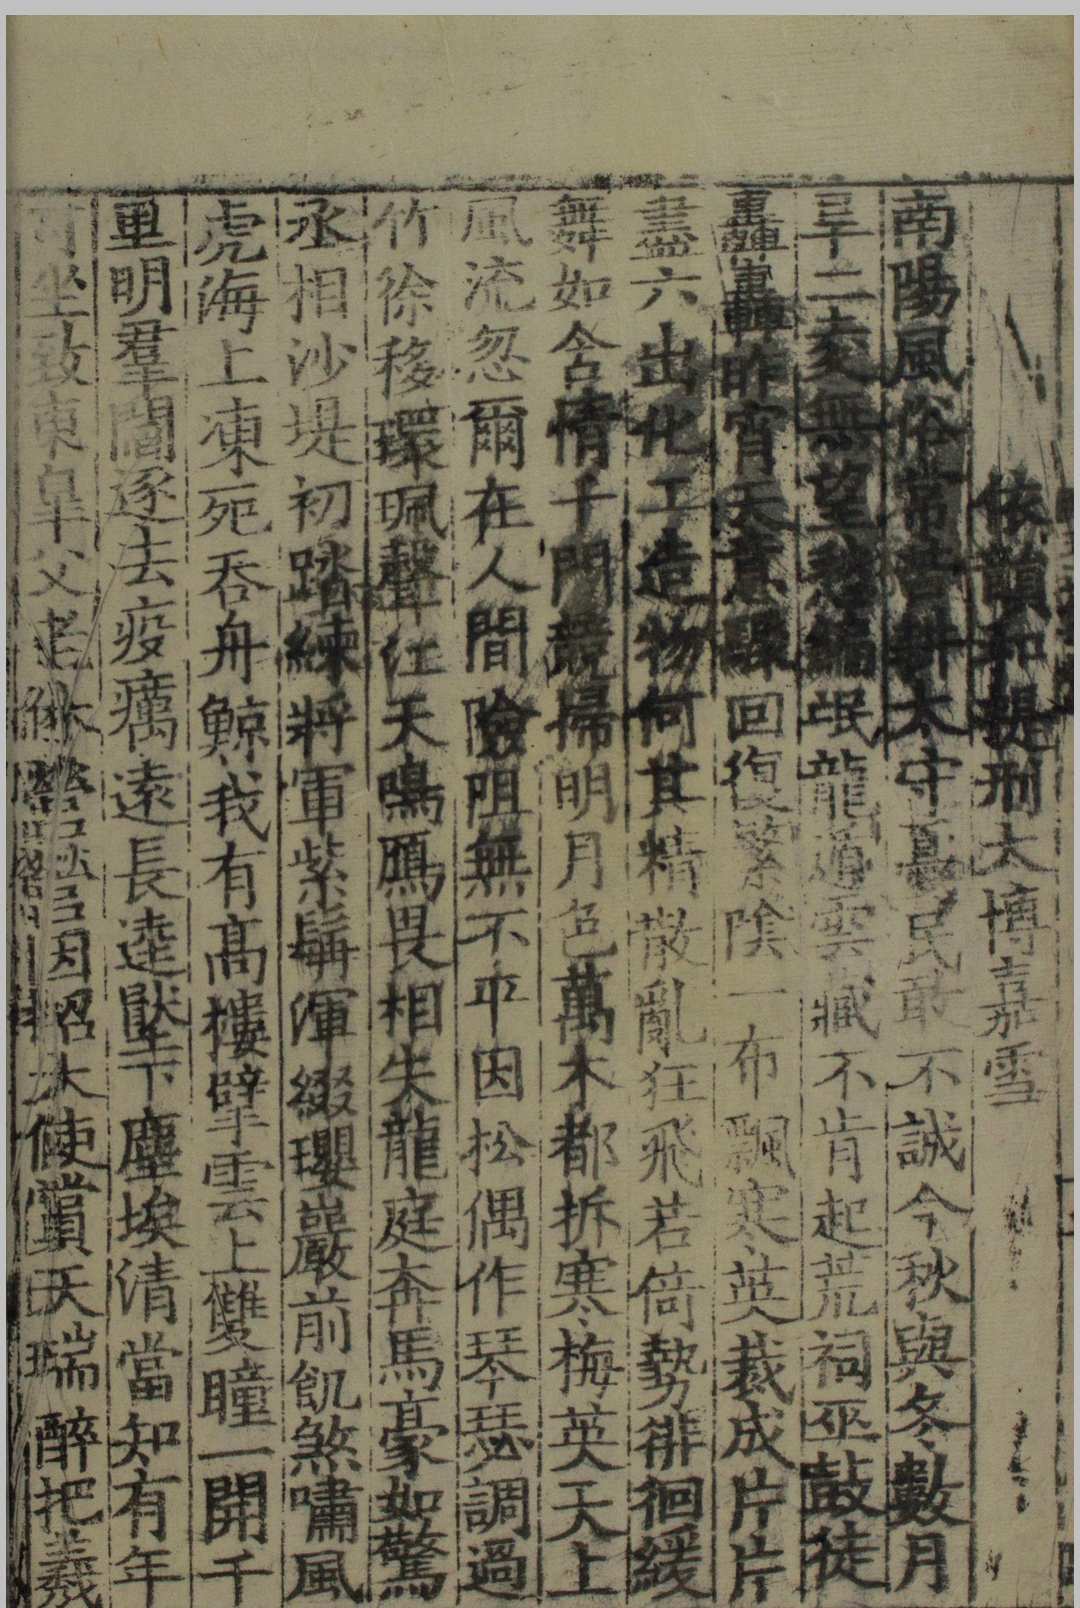 依韻和提刑太博嘉雪
南陽風俗常苦耕太守憂民敢不誠今秋與冬數月
旱二麥無望愁編氓龍遁雲藏不肯起荒祠巫鼓徒
轟轟昨宵天意驟回復繁陰一布飄寒英裁成片片
盡六出化工造物何其精散亂狂飛若倚勢徘徊緩
舞如含情千門競掃明月色萬木都拆寒梅英天上
風流忽爾在人間險阻無不平因松偶作琴瑟調過
竹徐移環珮聲江天鳴鴈畏相失龍庭奔馬豪如驚
丞相沙堤初踏練將軍紫髯渾綴瓔巖前飢煞嘯風
虎海上凍死吞舟鯨我有高樓擘雲上雙瞳一開千
里明羣閽逐去疫癘遠長逵壓下塵埃清當知有年
可坐致東皋父老休因招大使賞天瑞醉把羲